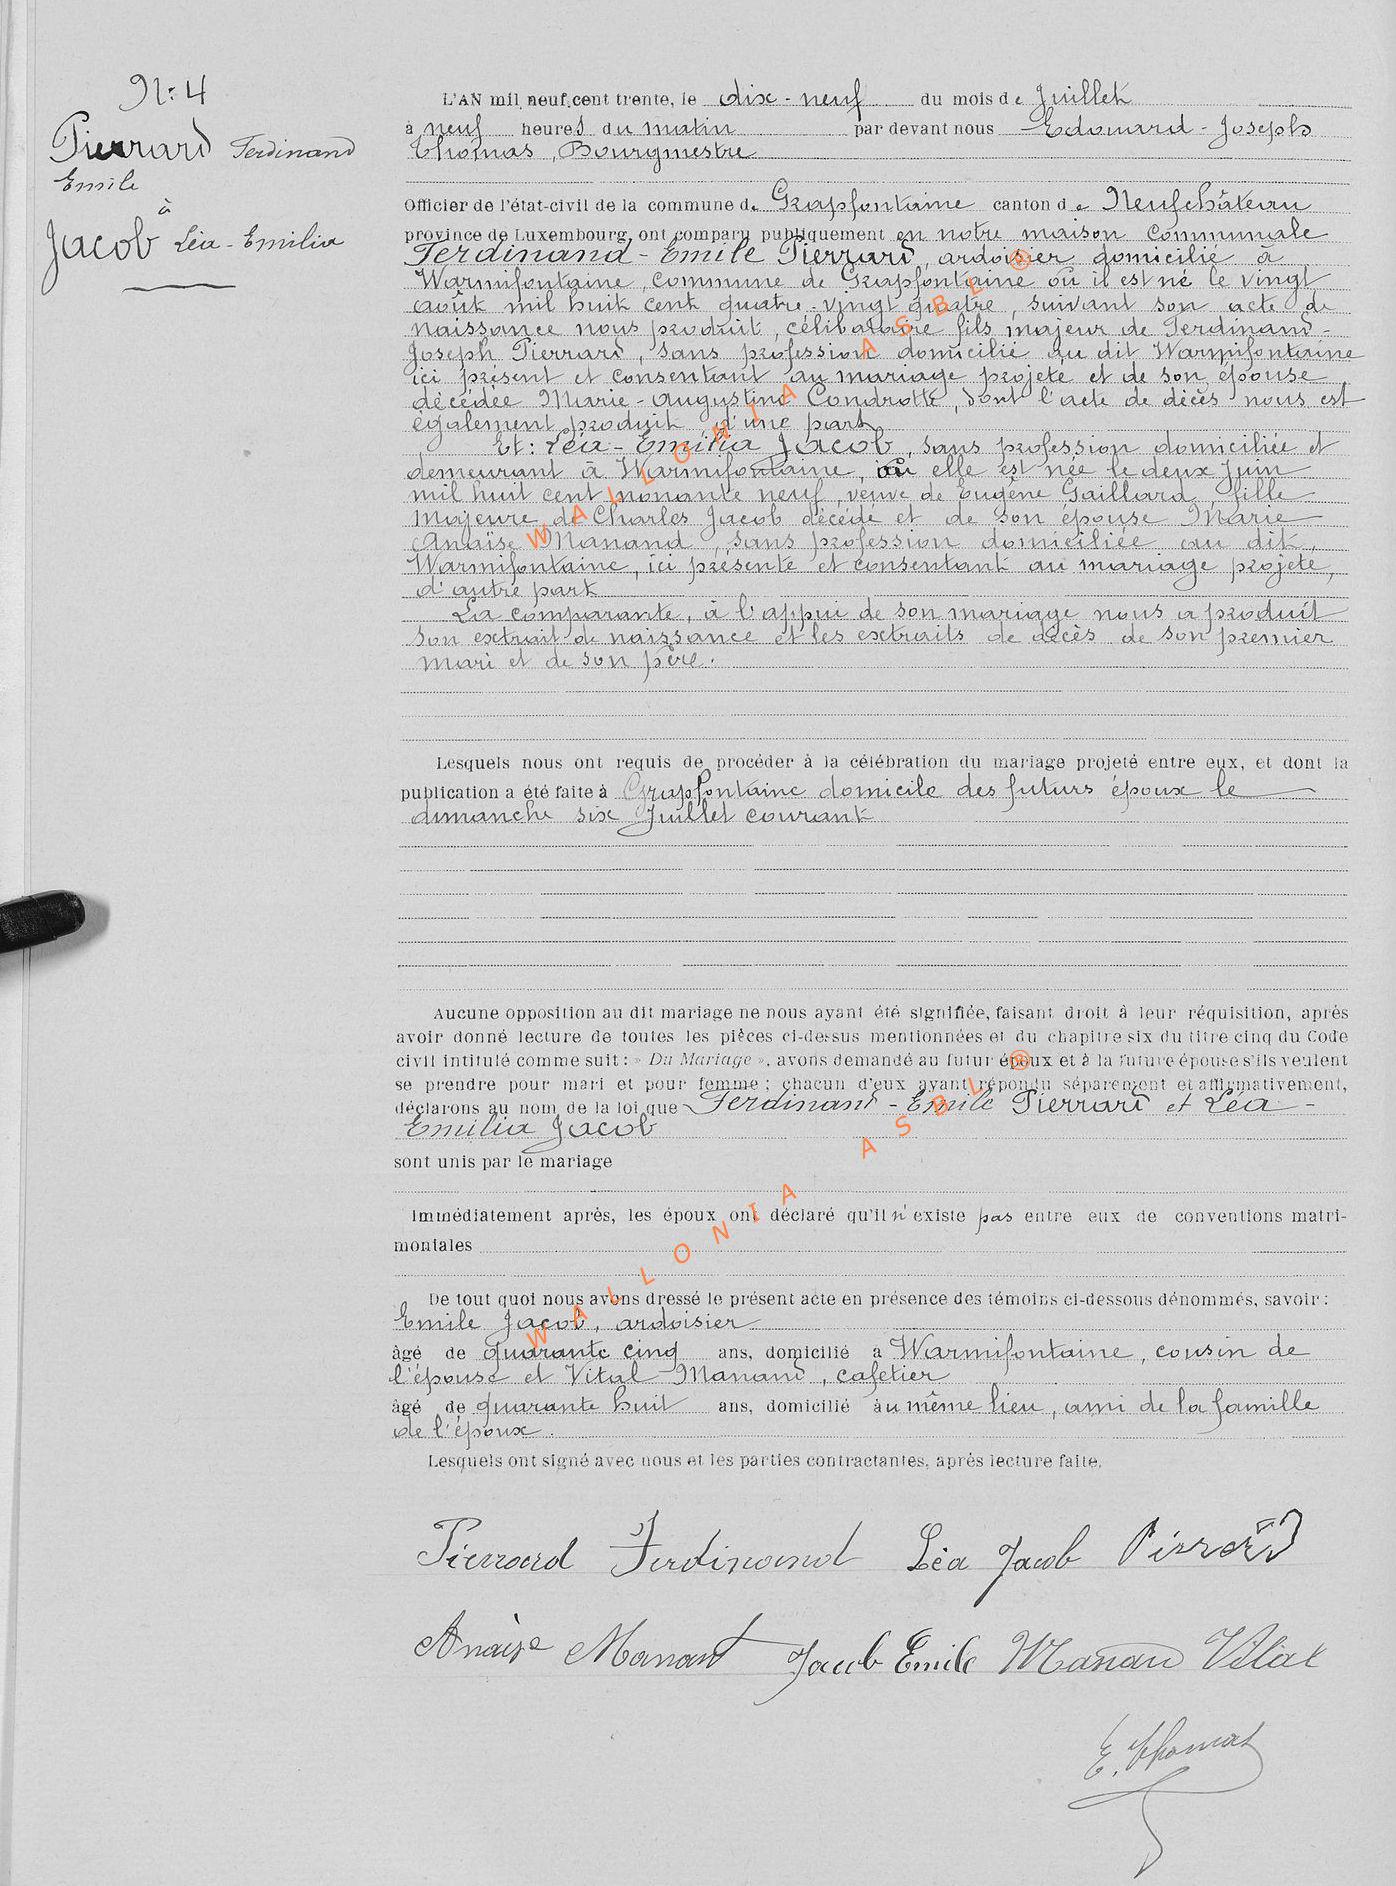 N: 4
Pierrard Ferdinand
Emile
à
Jacob Léa-Emilia
L'AN mil neuf cent trente, le dix-neuf du mois de Juillet
à neuf heures du matin par devant nous Edouard-Joseph
Thomas, Bourgmestre
Officier de l'état-civil de la commune de Grapfontaine canton de Neufchâteau
province de Luxembourg, ont comparu publiquement en notre maison communale
Ferdinand-Emile Pierrard, ardoisier domicilié à
Warmifontaine, commune de Grapfontaine où il est né le vingt
août mil huit cent quatre-vingt quatre, suivant son acte de
naissance nous produit, célibataire fils majeur de Ferdinand-
Joseph Pierrard, sans profession domicilié au dit Warmifontaine
ici présent et consentant au mariage projeté et de son épouse
décédée Marie-Augustine Condrotte, dont l'acte de décès nous est
également produit, d'une part
Et: Léa-Emilia Jacob, sans profession domiciliée et
demeurant à Warmifontaine, où elle est née le deux Juin
mil huit cent nonante neuf, veuve de Eugène Gaillard, fille
majeure de Charles Jacob décédé et de son épouse Marie
Anaïse Manand, sans profession domiciliée au dit,
Warmifontaine, ici présente et consentant au mariage projeté,
d'autre part
La comparante, à l'appui de son mariage nous a produit
son extrait de naissance et les extraits de décès de son premier
mari et de son père.
Lesquels nous ont requis de procéder à la célébration du mariage projeté entre eux, et dont la
publication a été faite à Grapfontaine domicile des futurs époux le
dimanche six Juillet courant
Aucune opposition au dit mariage ne nous ayant été signifiée, faisant droit à leur réquisition, après
avoir donné lecture de toutes les pièces ci-dessus mentionnées et du chapitre six du titre cinq du Code
civil intitulé comme suit : « Du Mariage », avons demandé au futur époux et à la future épouse s'ils veulent
se prendre pour mari et pour femme ; chacun d'eux ayant répondu séparément et affirmativement,
déclarons au nom de la loi que Ferdinand-Emile Pierrard et Léa-
Emilia Jacob
sont unis par le mariage
Immédiatement après, les époux ont déclaré qu'il n'existe pas entre eux de conventions matri-
moniales
De tout quoi nous avons dressé le présent acte en présence des témoins ci-dessous dénommés, savoir :
Emile Jacob, ardoisier
âgé de quarante cinq ans, domicilié à Warmifontaine, cousin de
l'épouse et Vital Manand, cafetier
âgé de quarante huit ans, domicilié au même lieu, ami de la famille
de l'époux.
Lesquels ont signé avec nous et les parties contractantes, après lecture faite.
Pierrard Ferdinand Léa Jacob Pierrard
Anaïse Manant Jacob Emile Manand Vital
E. Thomas
WALLONIA ASBL ®
WALLONIA ASBL ®